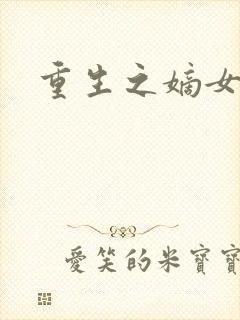 重生之嫡女
愛笑的米寶寶